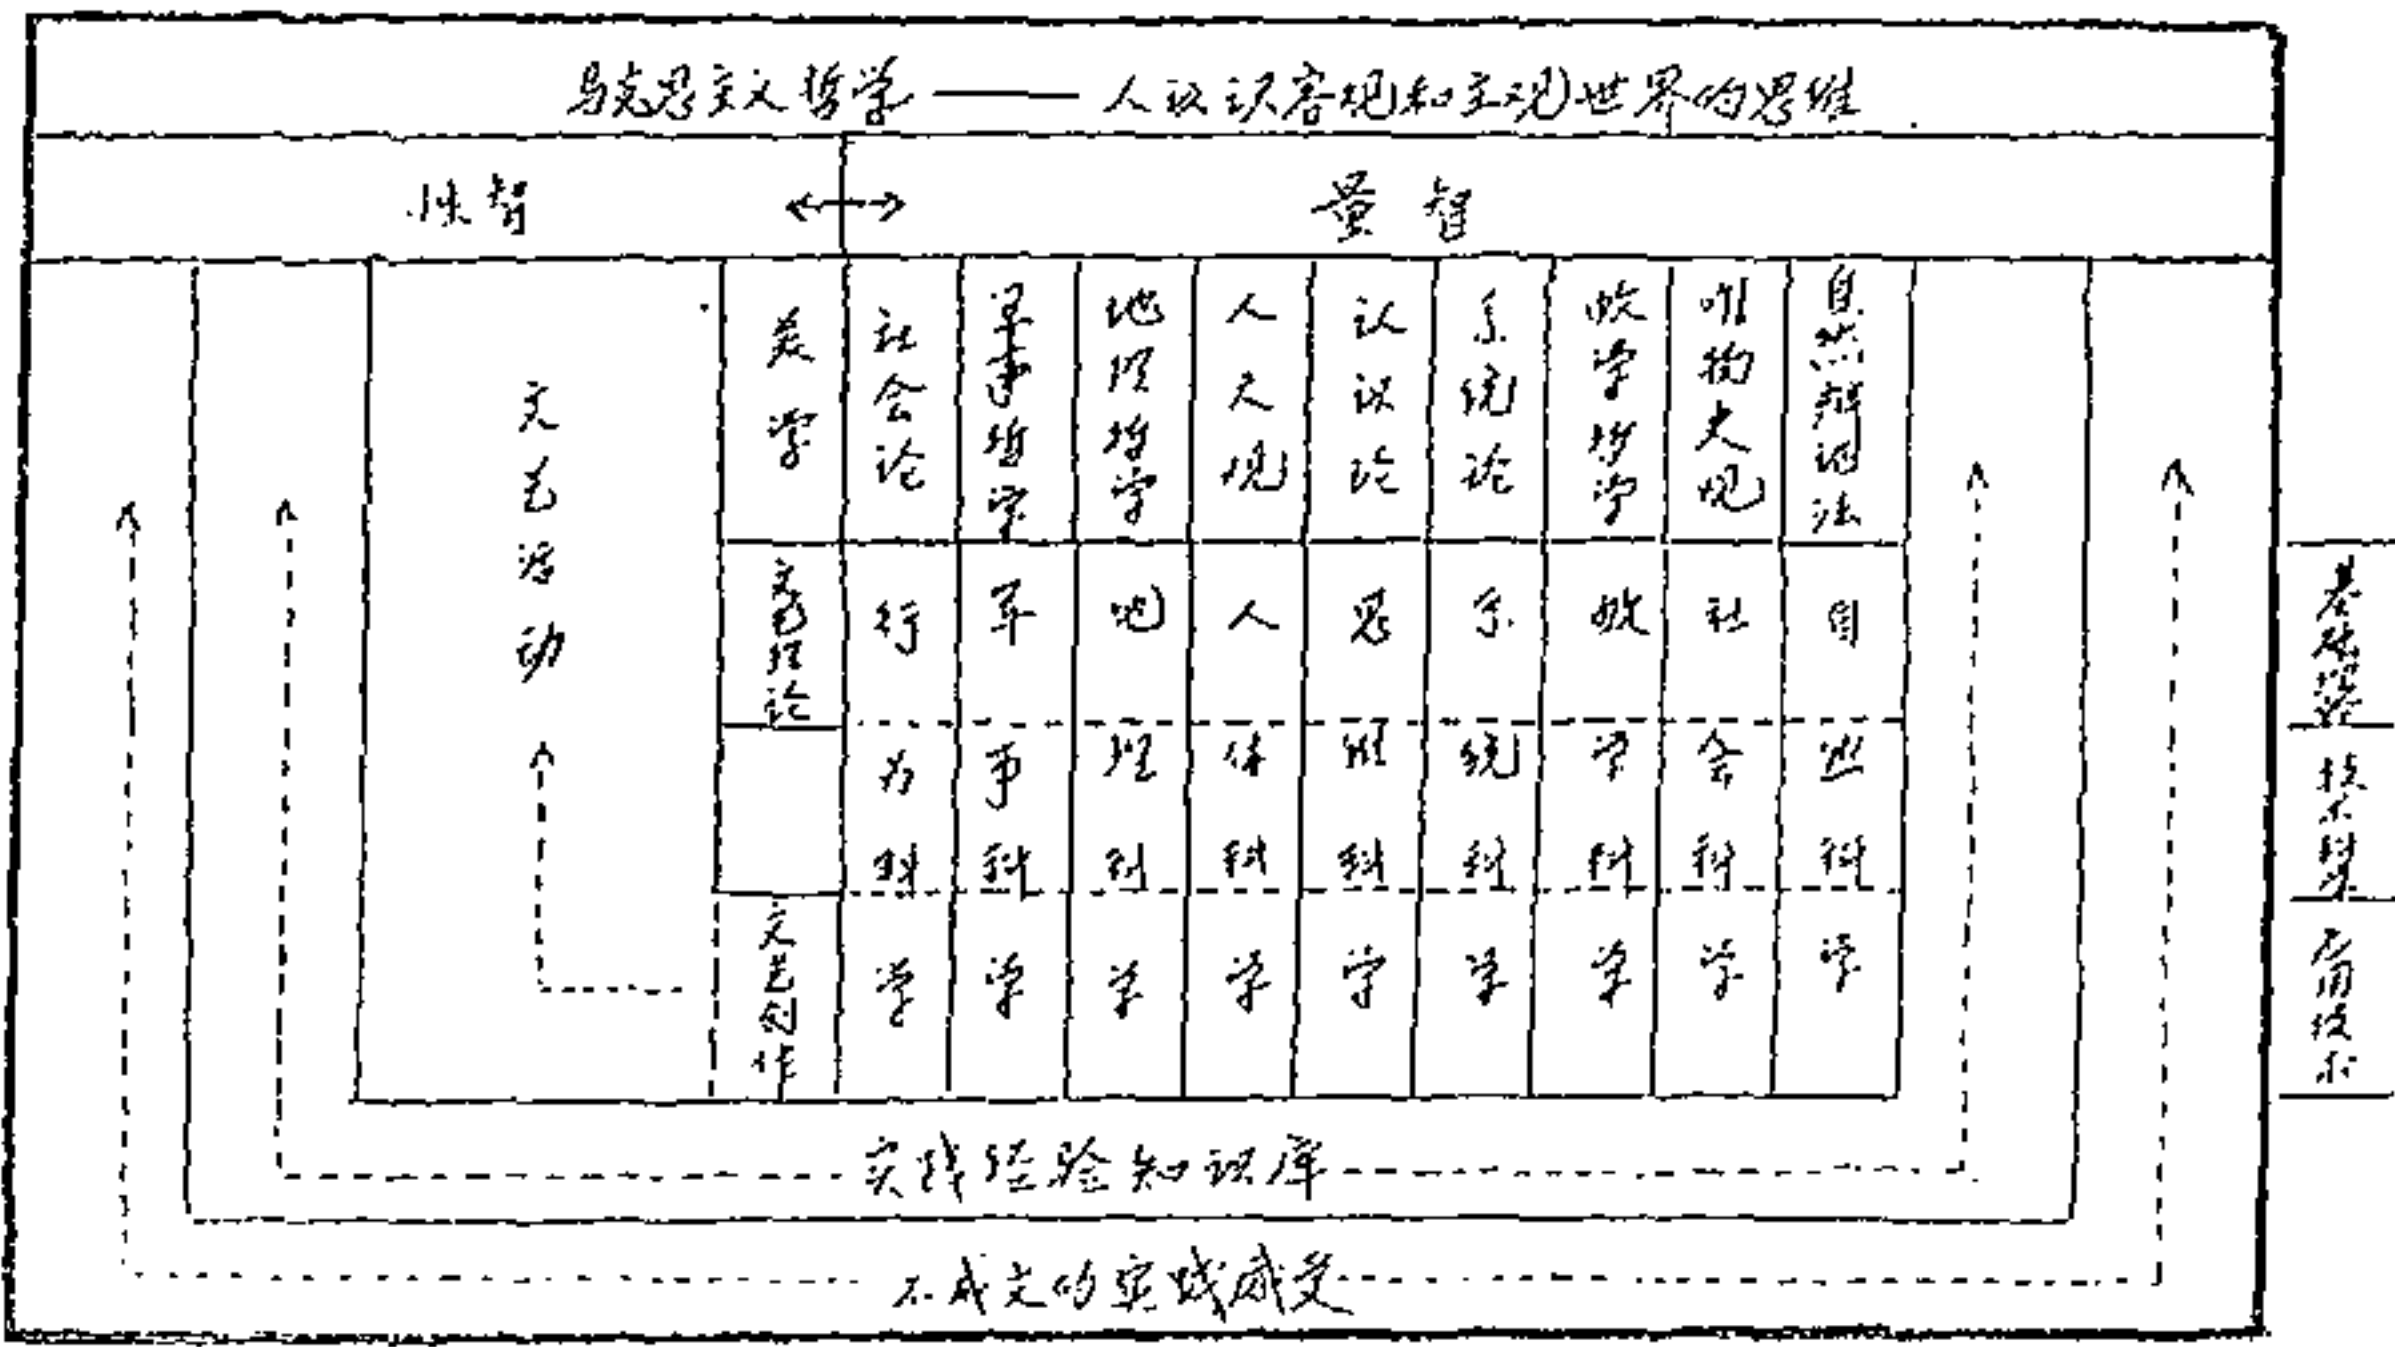 马克思主义哲学——人认识客观和主观世界的思维
性智 ←→ 量智
文艺活动
美学
社会论
军事哲学
地理哲学
人天观
认识论
系统论
数学哲学
唯物史观
自然辩证法
文艺理论
文艺创作
行为科学
军事科学
地理科学
人体科学
思维科学
系统科学
数学科学
社会科学
自然科学
基础理论
技术科学
应用技术
实践经验知识库
不成文的实践感受